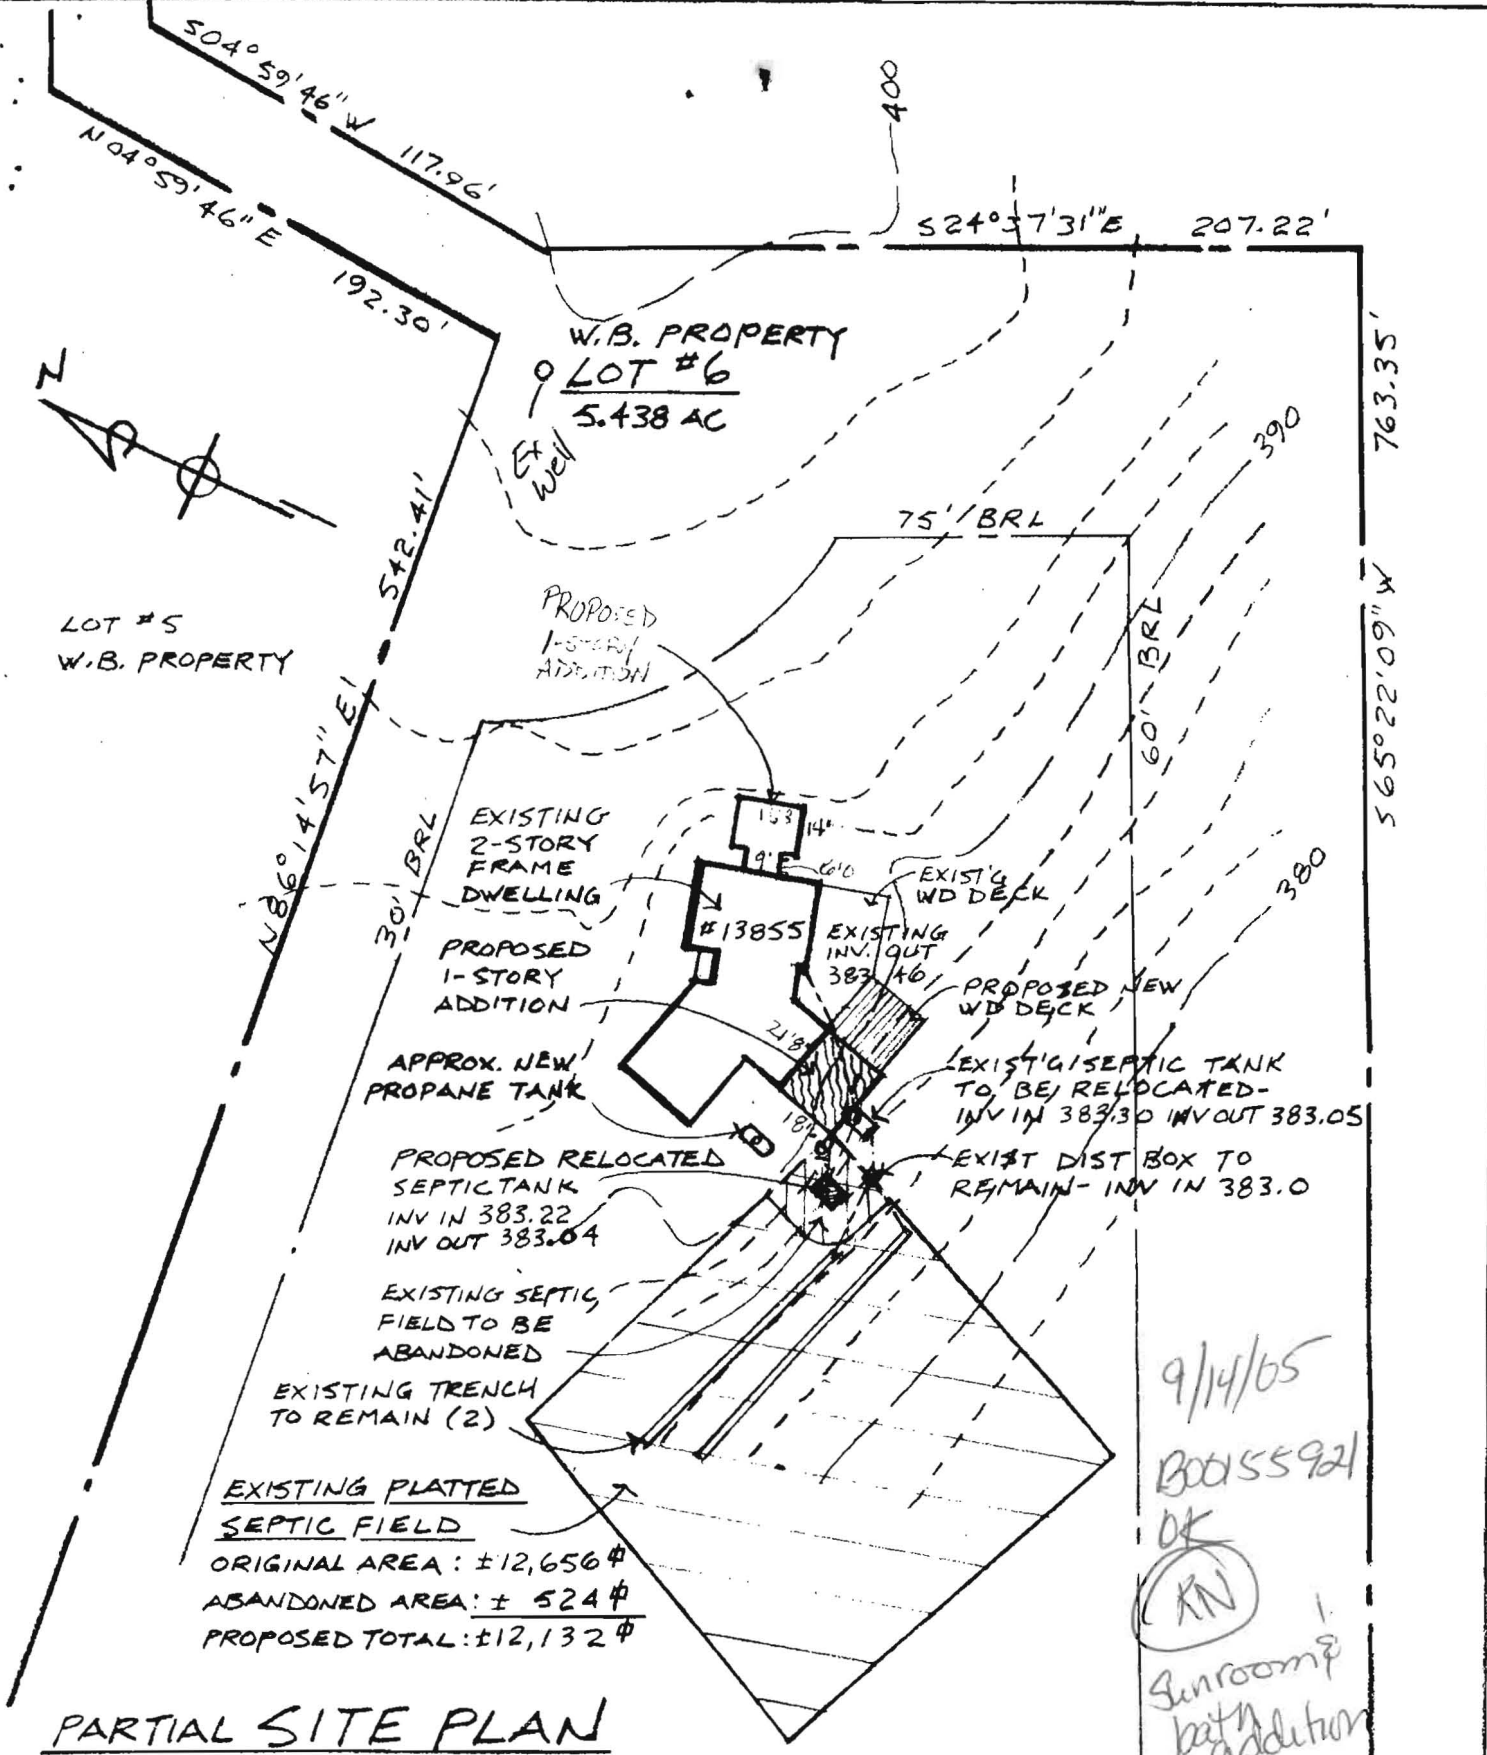 S04°59'46"W 117.96'
N04°59'46"E
192.30'
400
S24°37'31"E 207.22'
763.35'
S65°22'09"W
N
W.B. PROPERTY
LOT #6
5.438 AC
Ex
Well
390
542.41'
N86°14'57"E
75' BRL
LOT #5
W.B. PROPERTY
PROPOSED
1-STORY
ADDITION
60' BRL
30' BRL
380
EXISTING
2-STORY
FRAME
DWELLING
14'
9'
#13855
EXIST'G
WD DECK
EXISTING
INV. OUT
383.46
PROPOSED
1-STORY
ADDITION
PROPOSED NEW
WD DECK
21'8"
APPROX. NEW
PROPANE TANK
EXIST'G SEPTIC TANK
TO BE RELOCATED-
INV IN 383.30 INV OUT 383.05
18'
PROPOSED RELOCATED
SEPTIC TANK
INV IN 383.22
INV OUT 383.04
EXIST DIST BOX TO
REMAIN- INV IN 383.0
EXISTING SEPTIC
FIELD TO BE
ABANDONED
EXISTING TRENCH
TO REMAIN (2)
EXISTING PLATTED
SEPTIC FIELD
ORIGINAL AREA: ±12,656 ⏍
ABANDONED AREA: ± 524 ⏍
PROPOSED TOTAL: ±12,132 ⏍
9/14/05
B00155921
OK
RN
Sunroom &
bath
addition
PARTIAL SITE PLAN